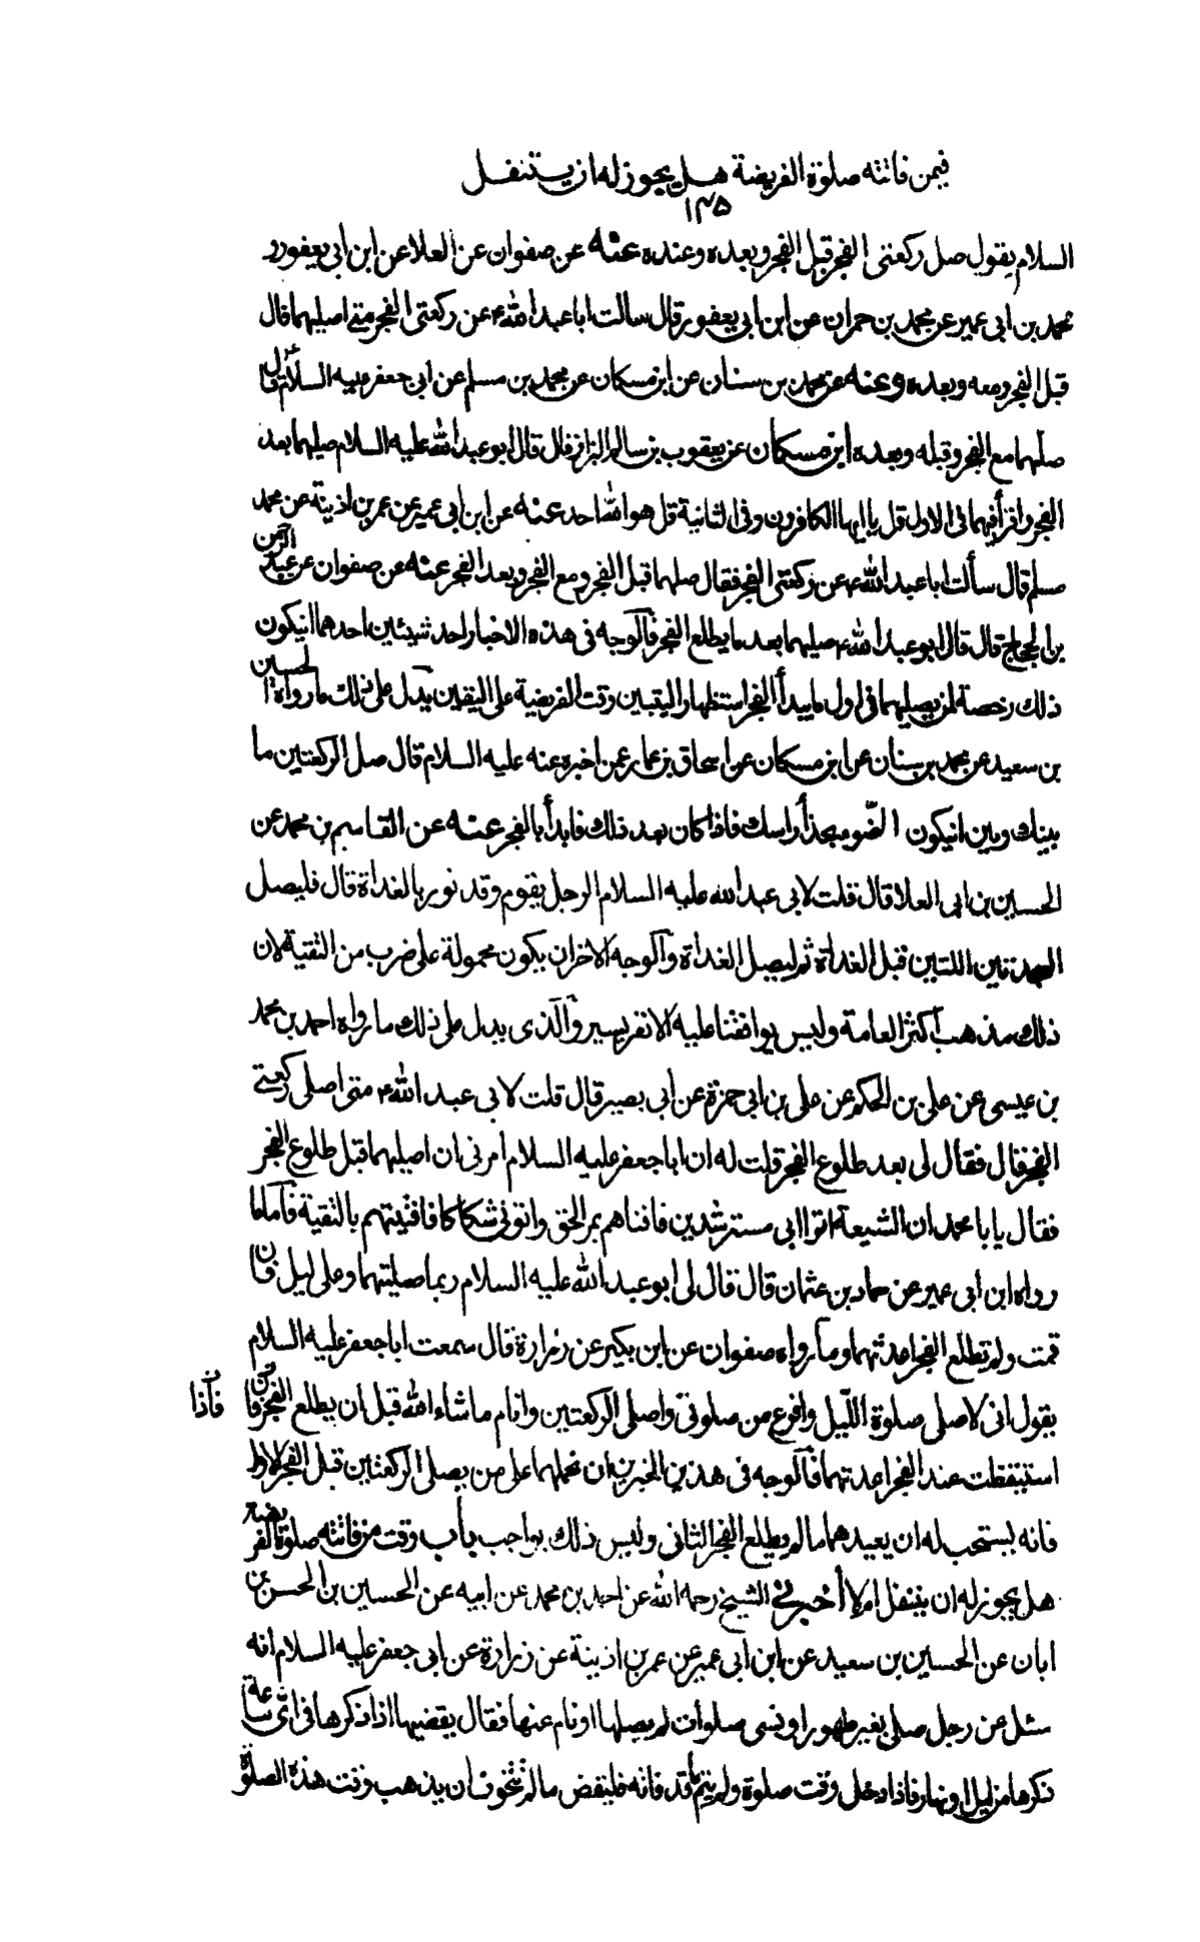 فيمن فاتته صلوة الفريضة هل يجوز له ان يتنفل
١٣٥
السلام يقول صل ركعتى الفجر قبل الفجر وبعده وعنده عنه عن صفوان عن العلا عن ابن ابى يعفور
محمد بن ابى عمير عن محمد بن حمران عن ابن ابى يعفور قال سالت ابا عبد الله ع عن ركعتى الفجر متى اصليهما قال
قبل الفجر ومعه وبعده وعنه عن محمد بن سنان عن ابن مسكان عن محمد بن مسلم عن ابى جعفر عليه السلام قال
صلهما مع الفجر وقبله وبعده ابن مسكان عن يعقوب بن سالم البزاز قال قال ابو عبد الله عليه السلام صلهما بعد
الفجر واقرأ فيهما فى الاولى قل يا ايها الكافرون وفى الثانية قل هو الله احد عنه عن ابن ابى عمير عن عمر بن اذينة عن محمد
مسلم قال سألت ابا عبد الله ع عن ركعتى الفجر فقال صلهما قبل الفجر ومع الفجر وبعد الفجر عنه عن صفوان عن عبد الرحمن
بن الحجاج قال قال ابو عبد الله ع صلهما بعد ما يطلع الفجر فالوجه فى هذه الاخبار احد شيئين احدهما انيكون
ذلك رخصة لمن يصليهما فى اول ما يبدأ الفجر استظهارا ليتبين وقت الفريضة على اليقين يدل على ذلك ما رواه الحسين
بن سعيد عن محمد بن سنان عن ابن مسكان عن اسحاق بن عمار عمن اخبره عنه عليه السلام قال صل الركعتين ما
بينك وبين انيكون الضوء بحذأ راسك فاذا كان بعد ذلك فابدأ بالفجر عنه عن القاسم بن محمد عن
الحسين بن ابى العلا قال قلت لابى عبد الله عليه السلام الرجل يقوم وقد نور بالغداة قال فليصل
السجدتين اللتين قبل الغداة ثم ليصل الغداة والوجه الاخر ان يكون محمولة على ضرب من التقية لان
ذلك مذهب اكثر العامة وليس يوافقنا عليه الا نفر يسير والذى يدل على ذلك ما رواه احمد بن محمد
بن عيسى عن على بن الحكم عن على بن ابى حمزة عن ابى بصير قال قلت لابى عبد الله ع متى اصلى ركعتى
الفجر قال فقال لى بعد طلوع الفجر قلت له ان ابا جعفر عليه السلام امرنى ان اصليهما قبل طلوع الفجر
فقال يا با محمد ان الشيعة اتوا ابى مسترشدين فافتاهم بمر الحق واتونى شكاكا فافتيتهم بالتقية فاما ما
رواه ابن ابى عمير عن حماد بن عثمان قال قال لى ابو عبد الله عليه السلام ربما صليتهما وعلى ليل فان
قمت ولم تطلع الفجر اعدتهما وما رواه صفوان عن ابن بكير عن زرارة قال سمعت ابا جعفر عليه السلام
يقول انى لاصلى صلوة الليل وافرغ من صلوتى واصلى الركعتين وانام ما شاء الله قبل ان يطلع الفجر فان فاذا
استيقظت عند الفجر اعدتهما فالوجه فى هذين الخبرين ان نحملهما على من يصلى الركعتين قبل الفجر الاول
فانه يستحب له ان يعيدهما ما لم يطلع الفجر الثانى وليس ذلك بواجب باب وقت من فاتته صلوة الفريضة
هل يجوز له ان يتنفل ام لا أخبرنى الشيخ رحمه الله عن احمد بن محمد عن ابيه عن الحسين بن الحسن بن
ابان عن الحسين بن سعيد عن ابن ابى عمير عن عمر بن اذينة عن زرارة عن ابى جعفر عليه السلام انه
سئل عن رجل صلى بغير طهور او نسى صلوات لم يصلها او نام عنها فقال يقضيها اذا ذكرها فى اى ساعة
ذكرها من ليل او نهار فاذا دخل وقت صلوة ولم يتم ما قد فاته فليقض ما لم يتخوف ان يذهب وقت هذه الصلوة